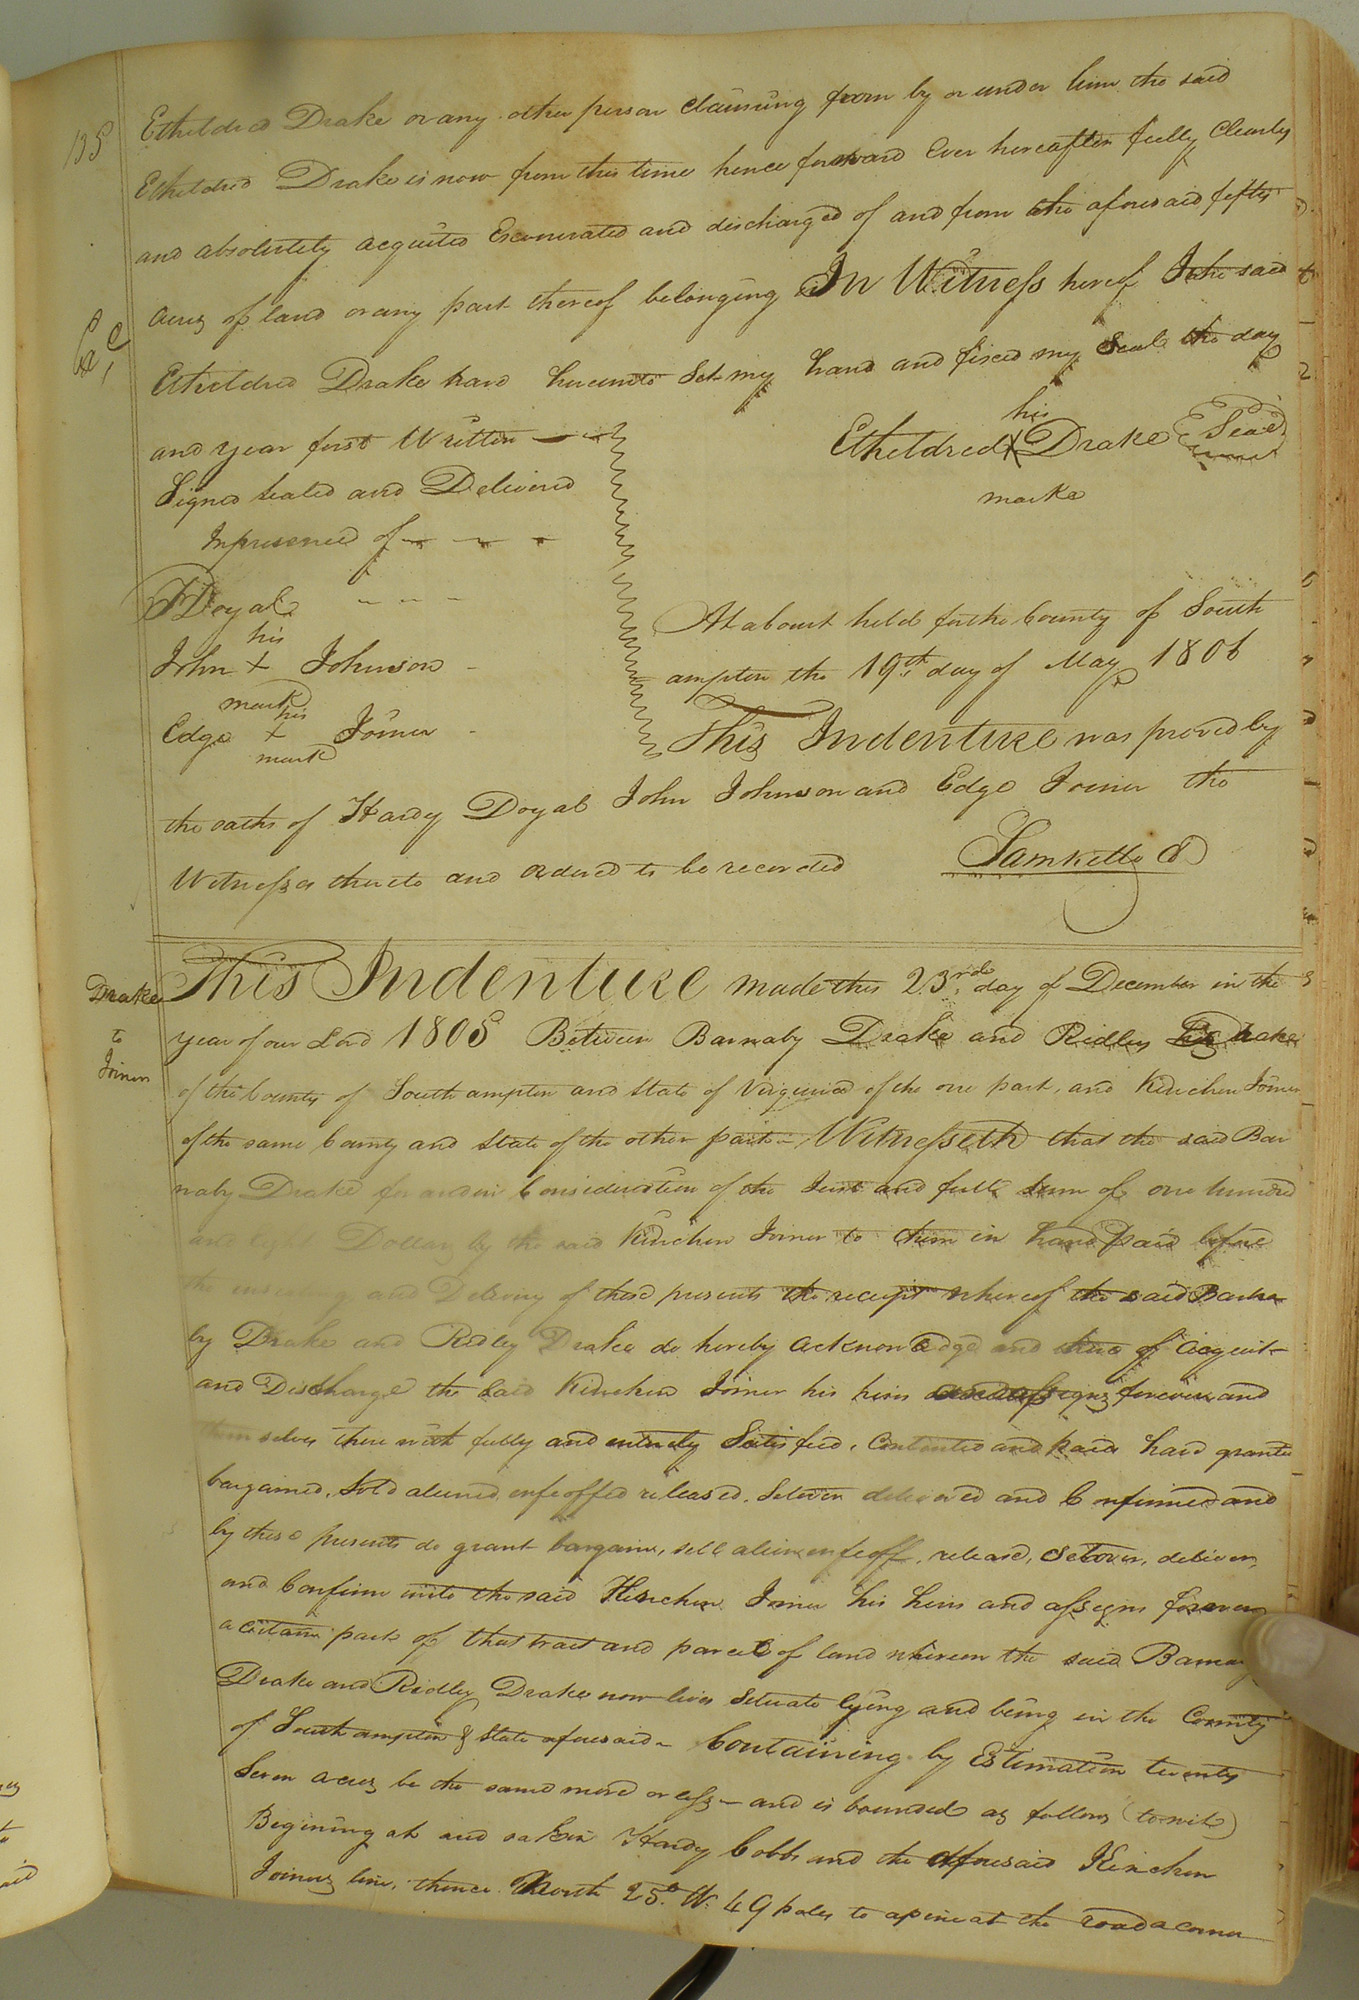 135
Etheldred Drake or any other person claiming from by or under him the said
Etheldred Drake is now from this time hence forward Ever hereafter fully Clearly
and absolutely acquited Exonerated and discharged of and from the aforesaid fifter
acres of land or any part thereof belonging In Witness hereof I the said
Etheldred Drake have hereunto Set my hand and fixed my Seal the day
and year first Written
his
Etheldred X Drake Seal
marke
Signed Sealed and Delivered
In presence of
H Doyal
his
John + Johnson
mark
his
Edge + Joiner
mark
At a Court held for the County of South
ampton the 19th day of May 1806
This Indenture was proved by
the oaths of Hardy Doyal John Johnson and Edge Joiner the
Witnesses thereto and ordered to be recorded
Sam Kello
Drake
to
Joiner
This Indenture made this 23rd day of December in the
year of our Lord 1805 Between Barnaby Drake and Ridley Drake
of the County of Southampton and State of Virginia of the one part, and Kinchen Joiner
of the same County and State of the other part Witnesseth that the said Bar
naby Drake for and in Consideration of the Just and full Sum of one hundred
and Eight Dollars by the said Kinchen Joiner to them in hand paid before
the ensealing and Delivery of these presents the receipt whereof the said Barna
by Drake and Ridley Drake do hereby acknowledge and there of acquit
and Discharge the Said Kinchen Joiner his heirs and assigns forever and
them selves there with fully and entirely Satisfied, Contented and paid have granted
bargained, Sold aliened enfeoffed released, Setover delivered and Confirmed and
by these presents do grant bargain, sell alien enfeoff, release, Setover, deliver,
and Confirm unto the said Kinchen Joiner his heirs and assigns forever
a certain part of that tract and parcel of land whereon the said Barnaby
Drake and Ridley Drake now lives Setuate lying and being in the County
of Southampton & State aforesaid Containing by Estimation twenty
Seven acres be the same more or less and is bounded as follows (towit)
Begining at and oak in Hardy Cobbs and the aforesaid Kinchen
Joiners line, thence North 25° W. 49 poles to a pine at the road a corner